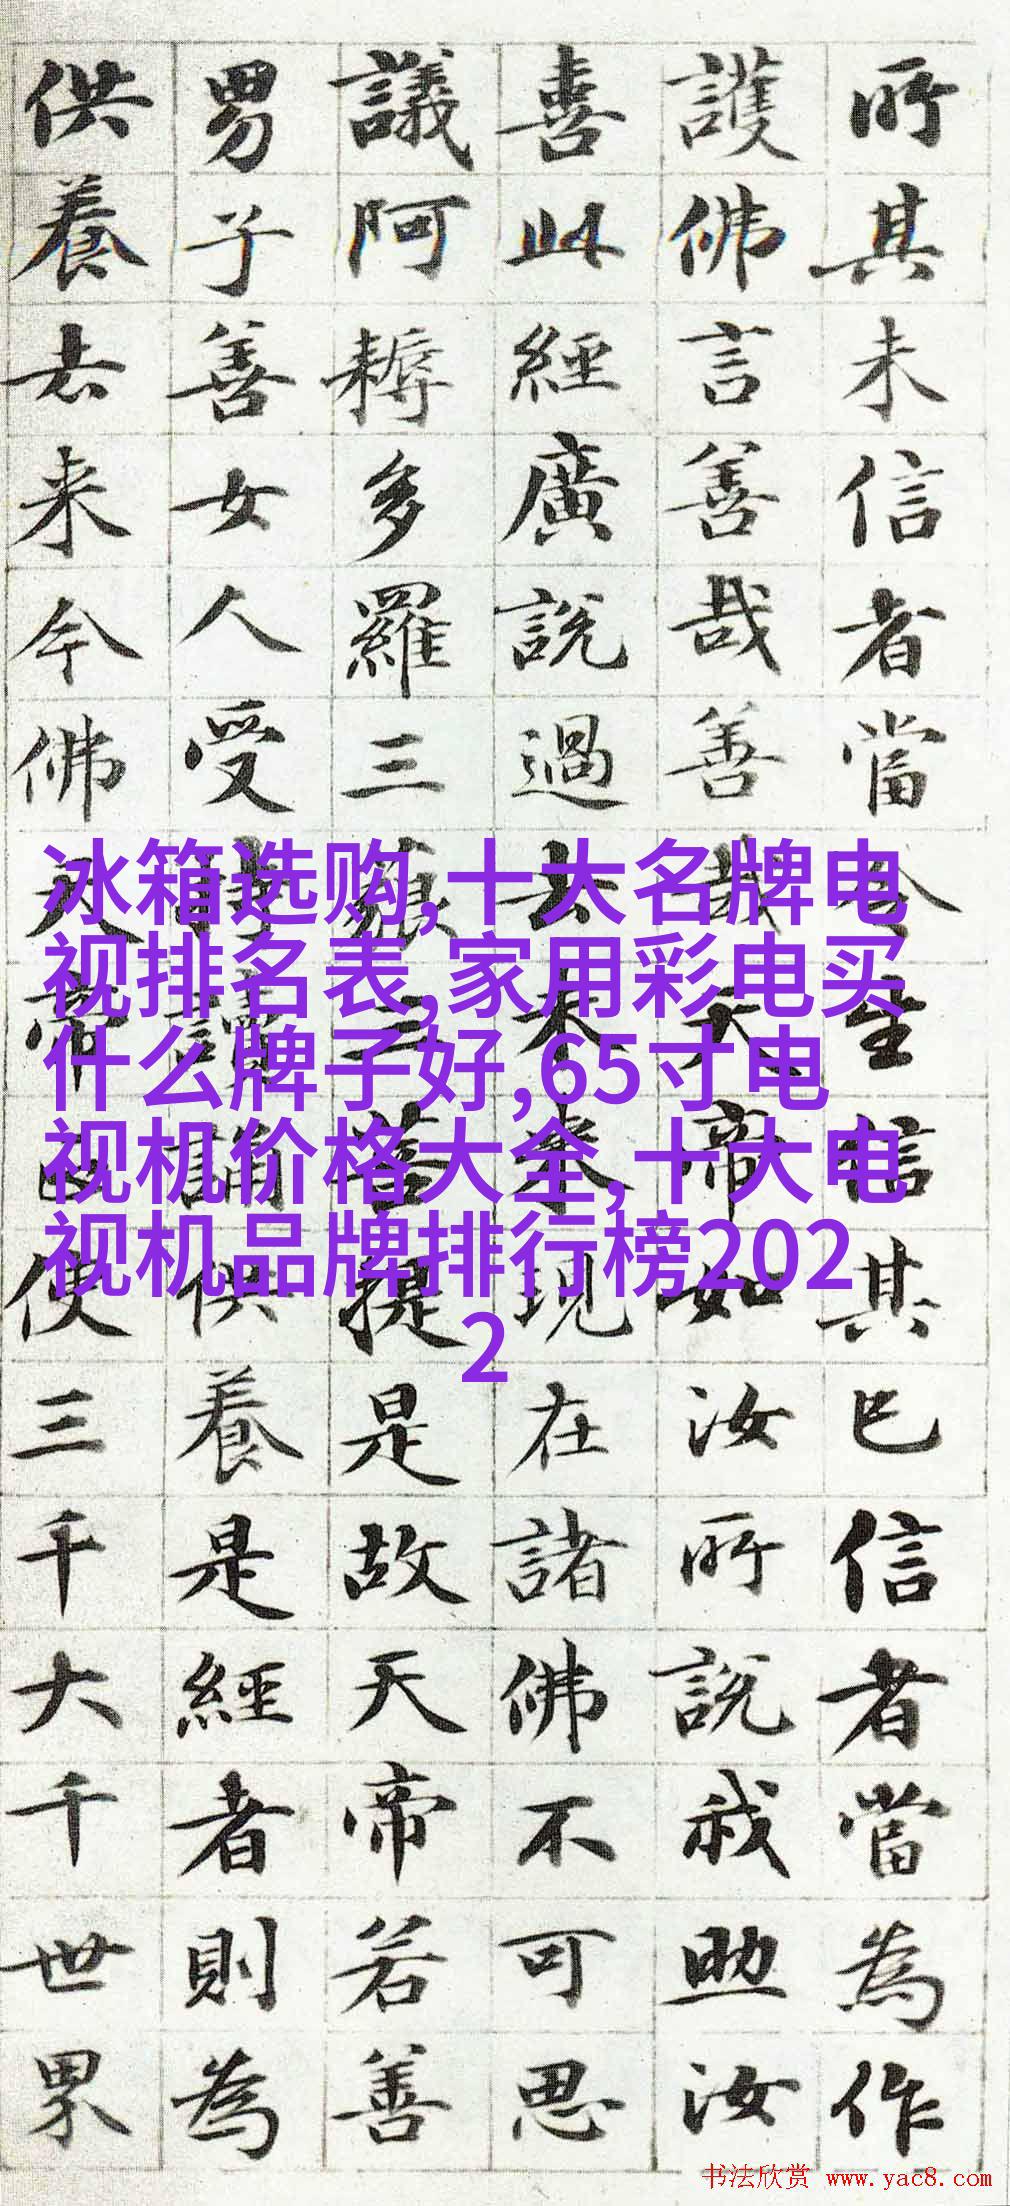 所其未信者當令生信其已信者當為作
護佛言善哉善哉天帝如汝所說我助汝
喜此經廣說過去未来現在諸佛不可思
議阿耨多羅三藐三菩提是故天帝若善
男子善女人受持讀誦供養是經者則為
供養去来今佛天帝正使三千大千世界
冰箱选购,十大名牌电
视排名表,家用彩电买
什么牌子好,65寸电
视机价格大全,十大电
视机品牌排行榜202
2
书法欣赏 www.yac8.com